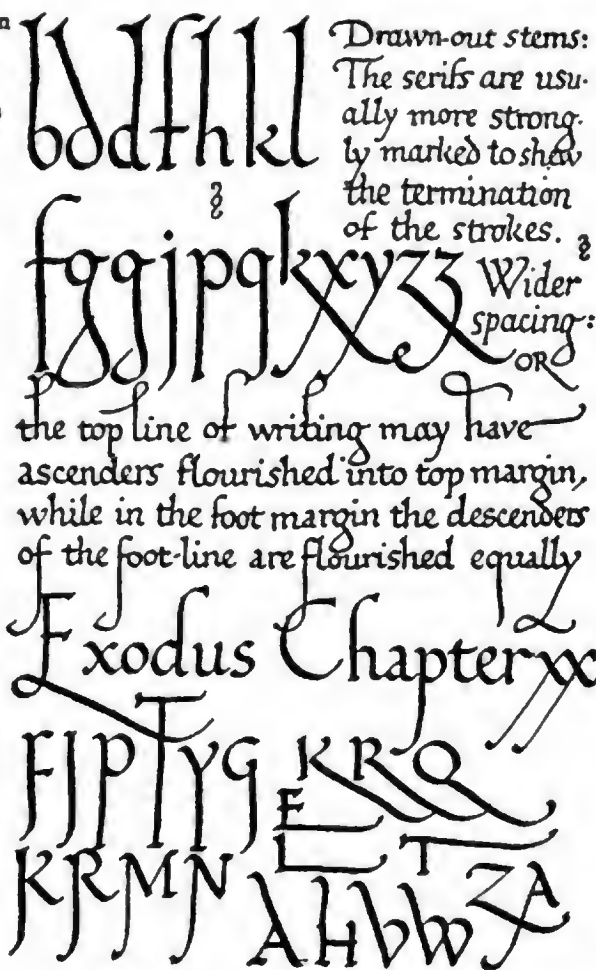 n
bddfhkl
Drawn-out stems:
The serifs are usu-
ally more strong-
ly marked to shew
the termination
of the strokes.
fggjpqkxyzz
Wider
spacing:
OR
the top line of writing may have
ascenders flourished into top margin,
while in the foot margin the descenders
of the foot-line are flourished equally
Exodus Chapter xx
FJPTYG KRQ
E
L T
KRMN AHVW ZA